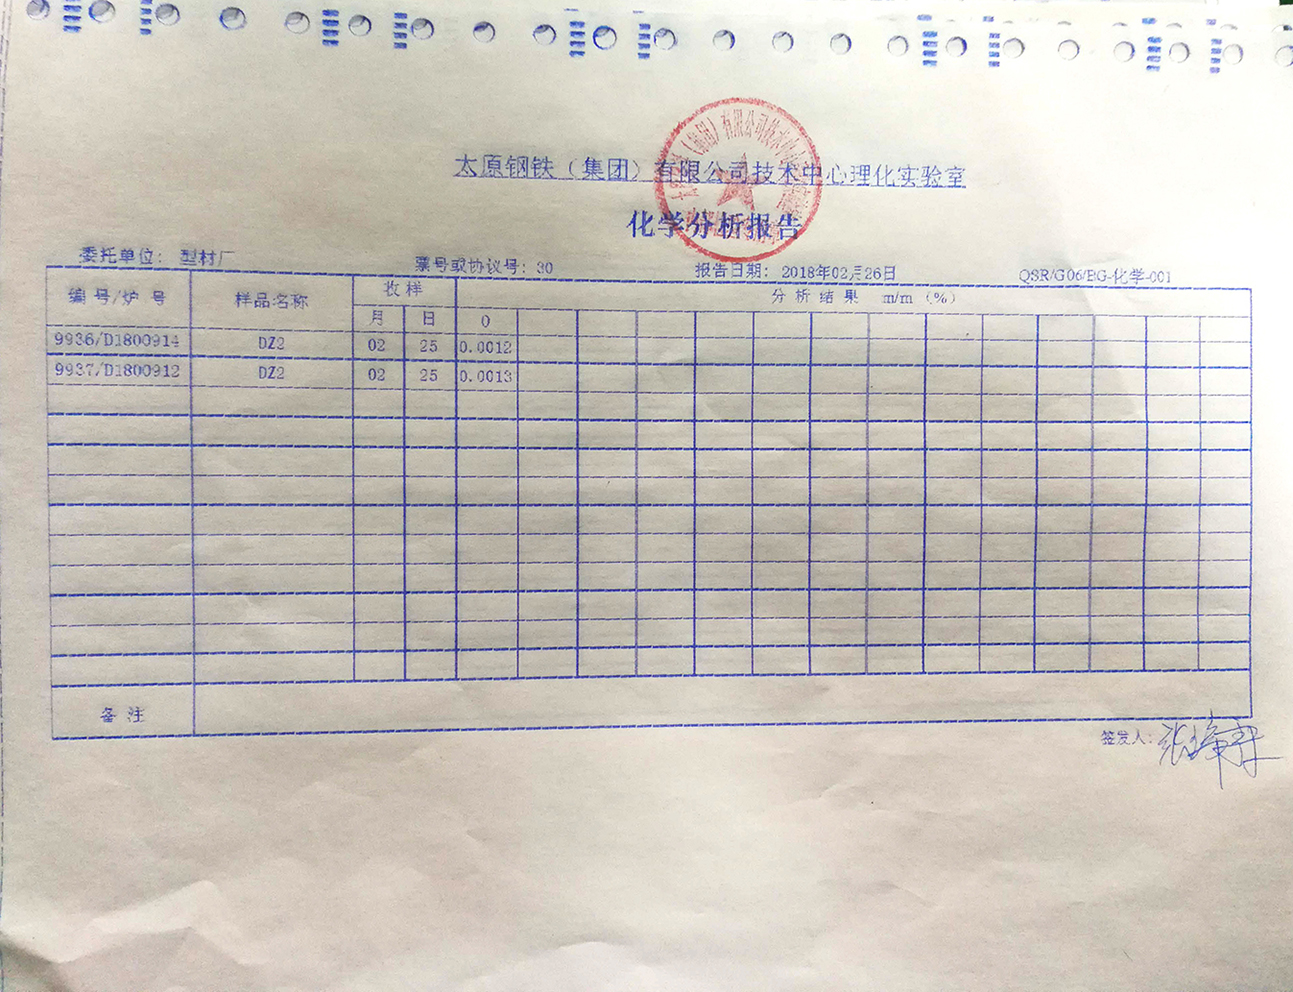 太原钢铁（集团）有限公司技术中心理化实验室
化学分析报告
委托单位： 型材厂 票号或协议号：30 报告日期： 2018年02月26日 QSR/G06/BG-化学-001
编号/炉号 样品名称 收样 分析结果 m/m (%)
月 日 O
9936/D1800914 DZ2 02 25 0.0012
9937/D1800912 DZ2 02 25 0.0013
备注
签发人：